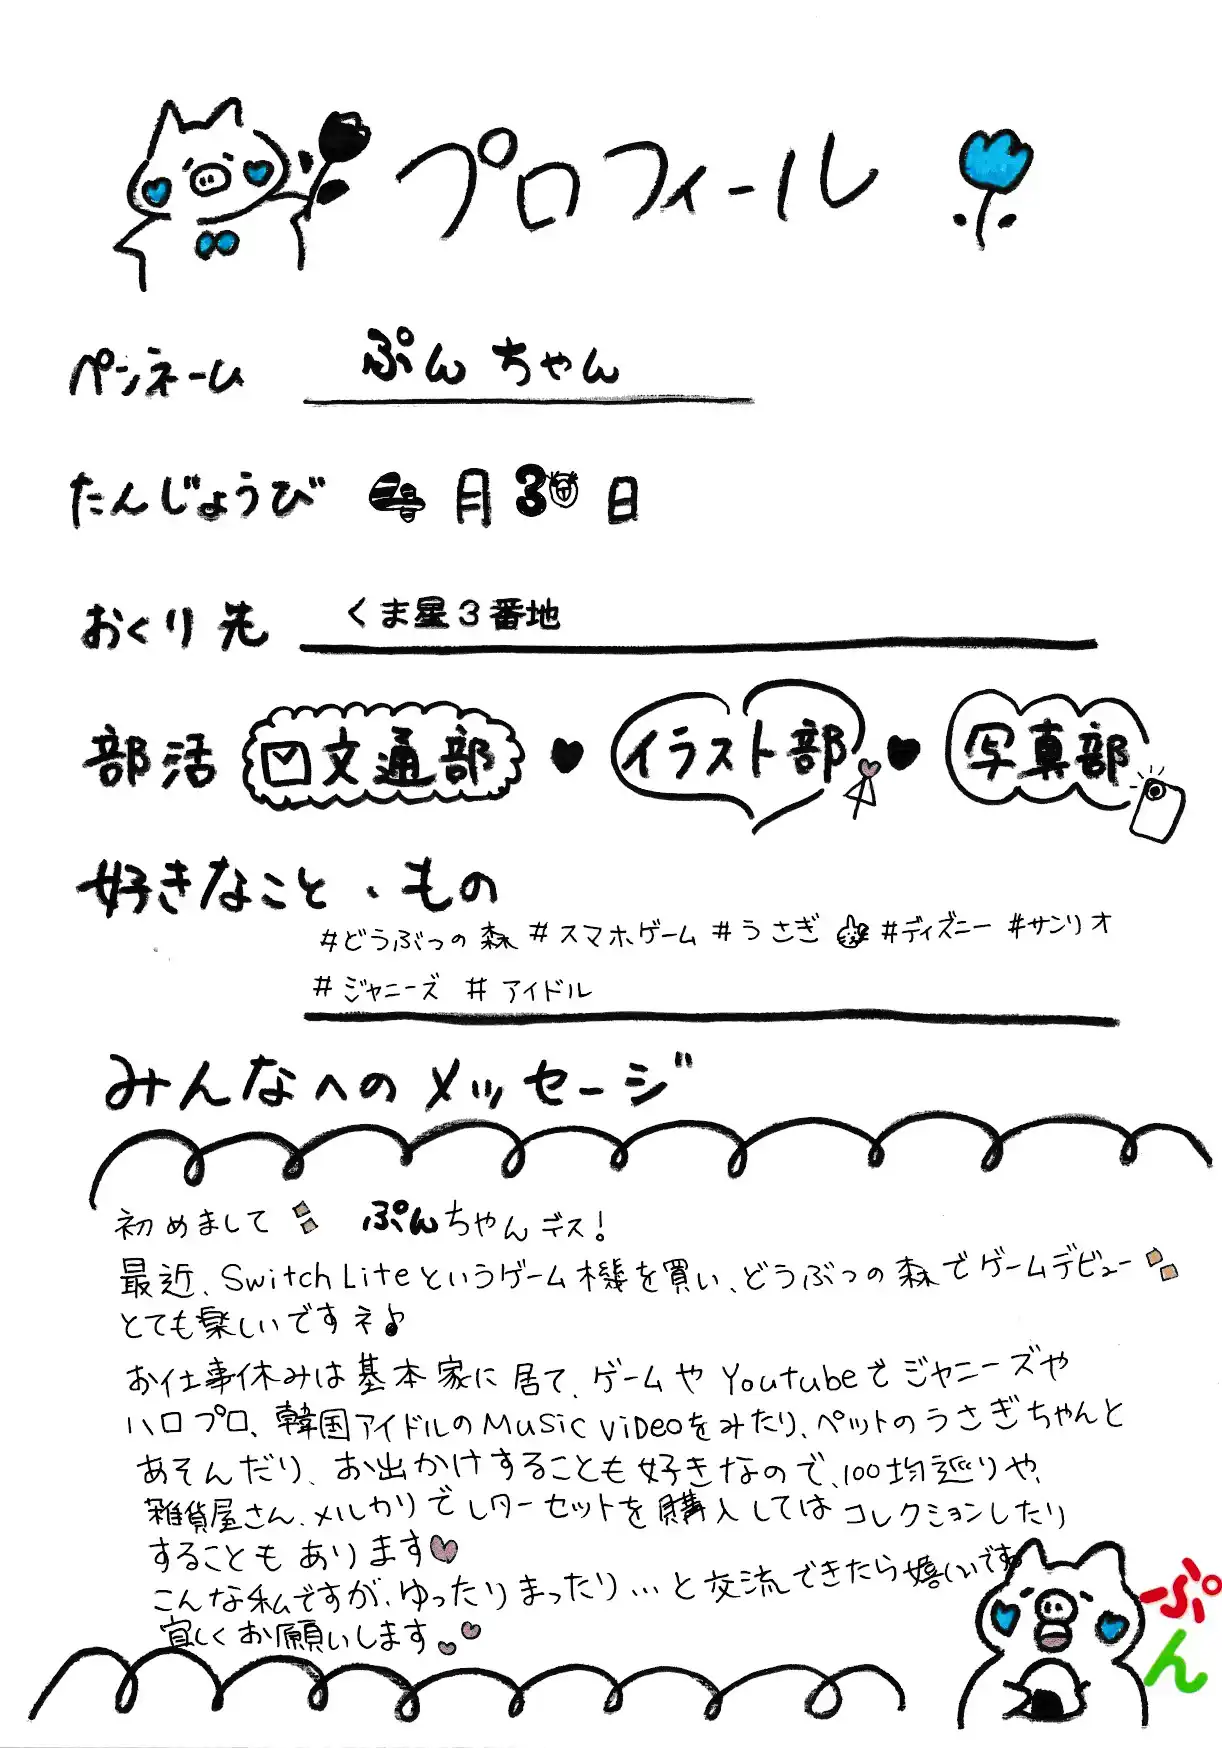 プロフィール
ペンネーム ぷんちゃん
たんじょうび 月 3 日
おくり先 くま星3番地
部活 文通部 ♥ イラスト部 ♥ 写真部
好きなこと、もの
#どうぶつの森 #スマホゲーム #うさぎ #ディズニー #サンリオ
#ジャニーズ #アイドル
みんなへのメッセージ
初めまして ぷんちゃんデス!
最近、Switch Liteというゲーム機を買い、どうぶつの森でゲームデビュー
とても楽しいですネ♪
お仕事休みは基本家に居て、ゲームやYoutubeでジャニーズや
ハロプロ、韓国アイドルのMusic Videoをみたり、ペットのうさぎちゃんと
あそんだり、お出かけすることも好きなので、100均巡りや、
雑貨屋さん、メルカリでレターセットを購入してはコレクションしたり
することもあります♥
こんな私ですが、ゆったりまったり…と交流できたら嬉しいです。
宜しくお願いします
ぷん